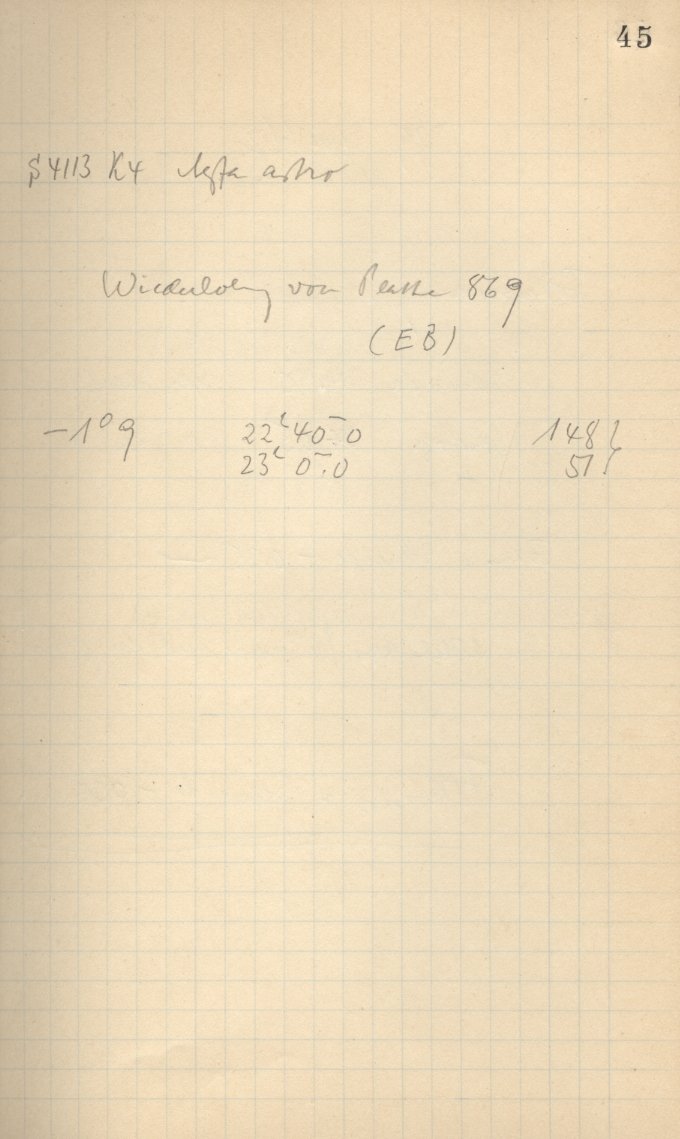 45
S4113 K4 Agfa astro
Wiederholung von Platte 869
(EB)
-1°9 22ʰ40ᵐ.0 148
23ʰ 0ᵐ.0 51